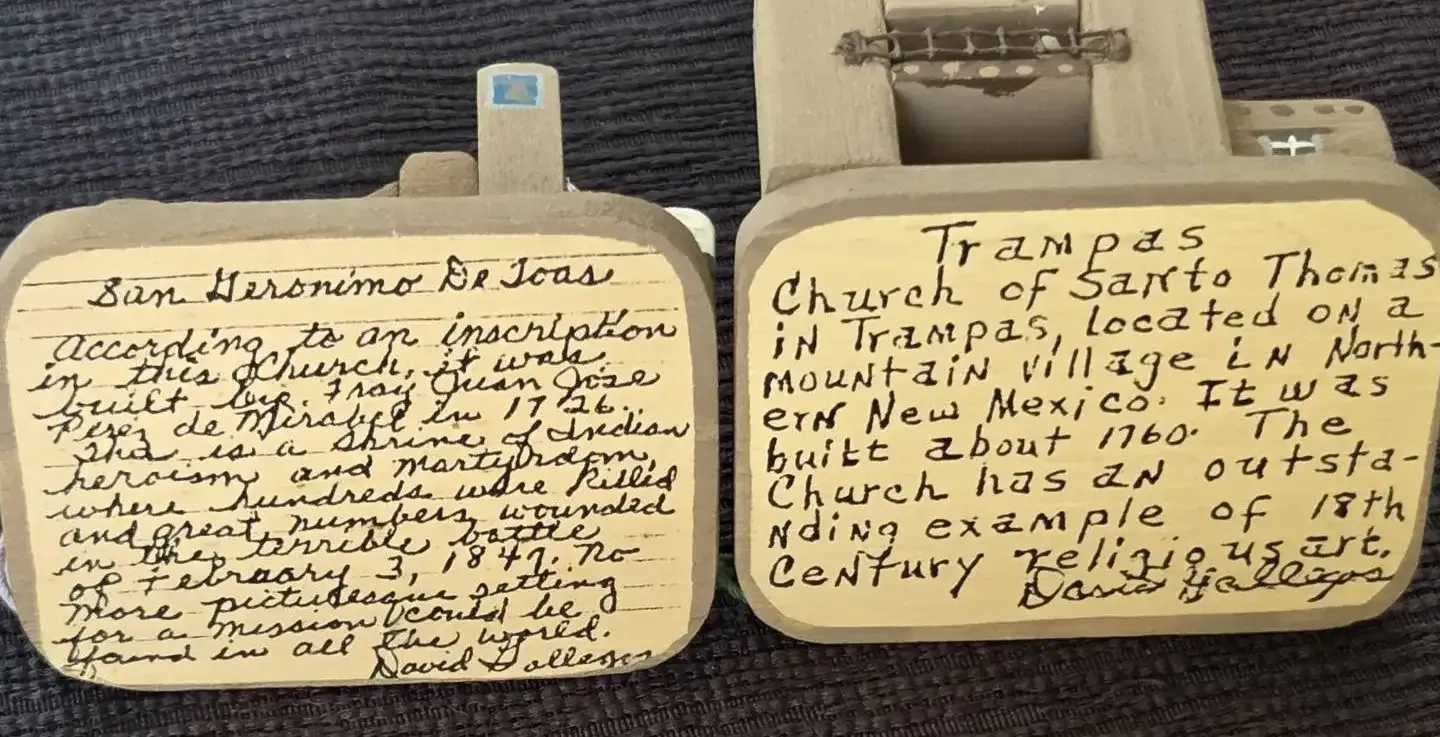 San Geronimo De Toas
According to an inscription
in this Church, it was
built by. Fray Juan Jose
Perez de Mirabel in 1726.
This is a shrine of Indian
heroism and martyrdom,
where hundreds were killed
and great numbers wounded
in the terrible battle
of February 3, 1847. No
more picturesque setting
for a mission could be
found in all the world.
David Gallegos
Trampas
Church of Santo Thomas
in Trampas, located on a
mountain village in North-
ern New Mexico. It was
built about 1760. The
Church has an outsta-
nding example of 18th
Century religious art.
David Gallegos